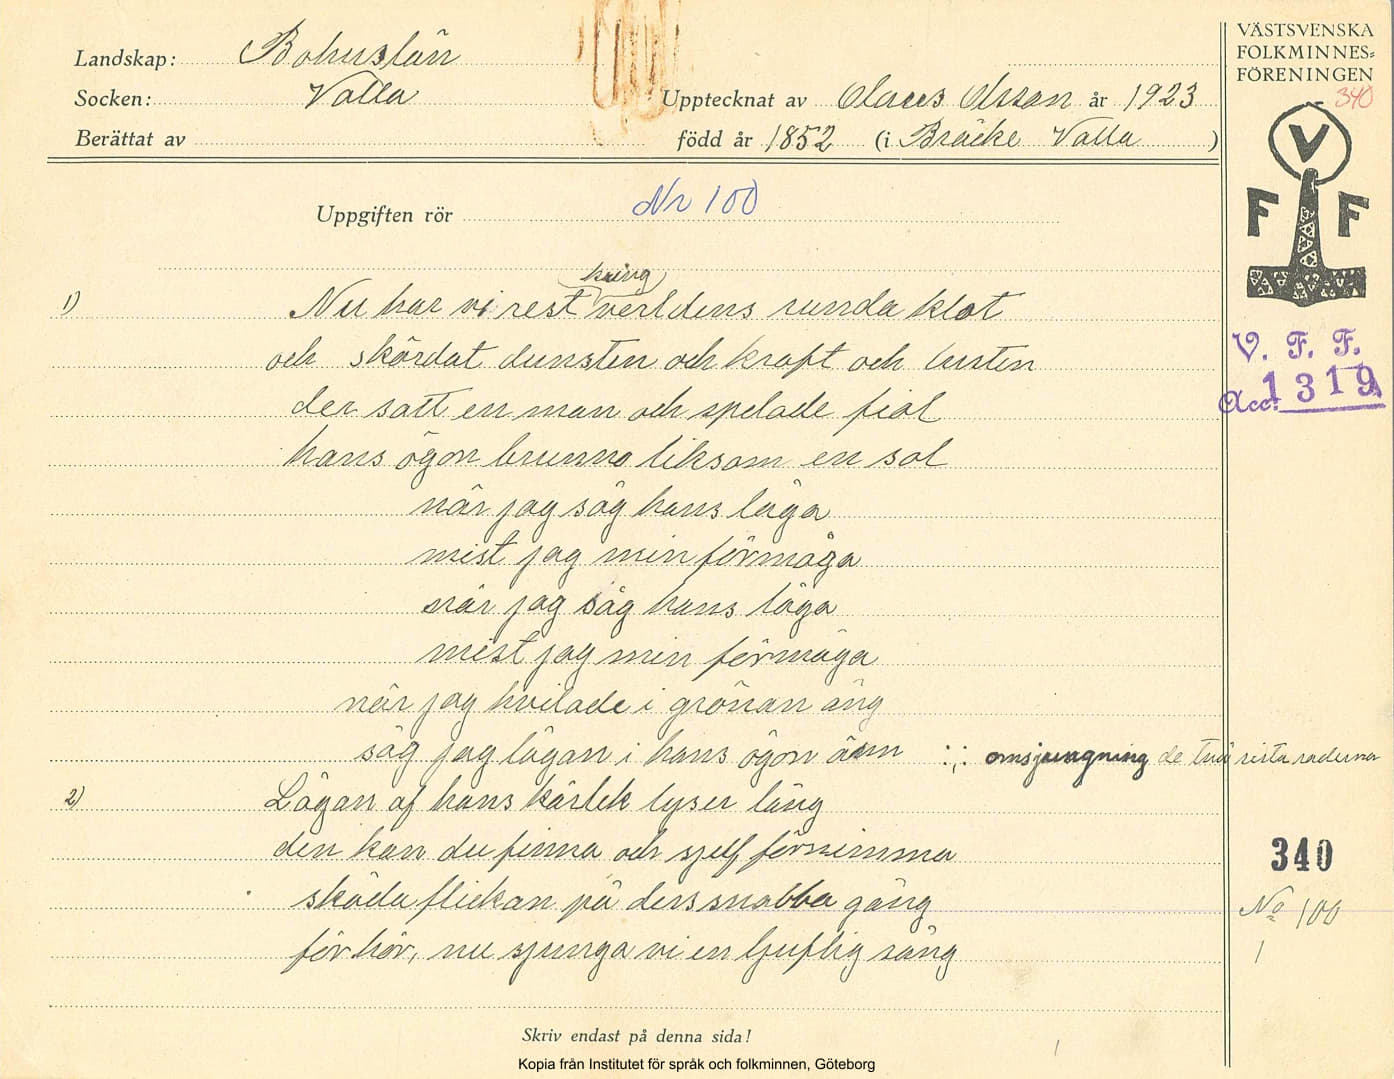 Landskap: Bohuslän
Socken: Valla
Berättat av
Upptecknat av Olaus Olsson år 1923
född år 1852 (i Bräcke Valla )
VÄSTSVENSKA
FOLKMINNES-
FÖRENINGEN
340
V
F F
V. F. F.
Acc. 1319
Uppgiften rör Nr 100
kring
1) Nu har vi rest verldens runda klot
och skördat dunsten och kraft och lusten
der satt en man och spelade fiol
hans ögon brunno liksom en sol
når jag såg hans låga
mist jag min förmåga
når jag såg hans låga
mist jag min förmåga
når jag hvilade i grönan äng
såg jag lågan i hans ögon än :,: omsjungning de två sista raderna
2) Lågan af hans kärlek lyser lång
den kan du finna och sjelf förnimma
skåda flickan på dess snabba gång
för hör, nu sjunga vi en ljuflig sång
340
No 100
1
Skriv endast på denna sida!
Kopia från Institutet för språk och folkminnen, Göteborg